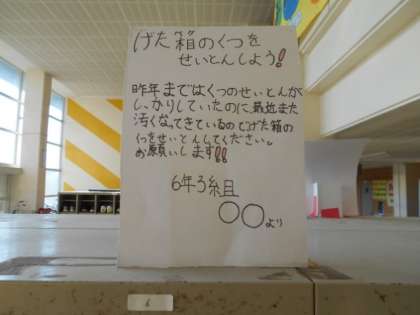 げた箱のくつを
せいとんしよう!!
昨年まではくつのせいとんが
しっかりしていたのに、最近また
汚くなってきているのでげた箱の
くつをせいとんしてください。
お願いします!!
6年3組
○○より